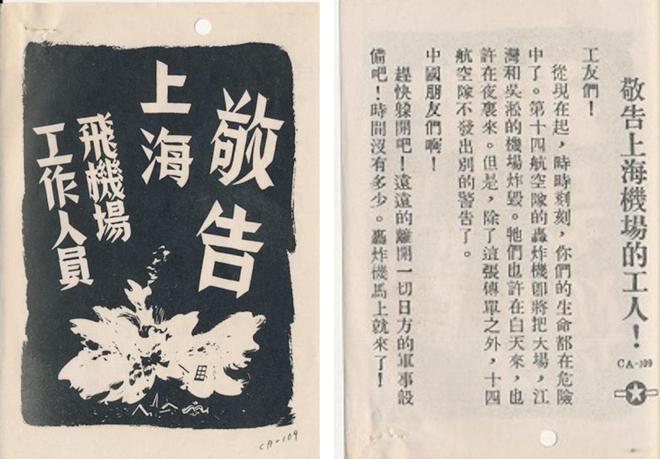 敬告
上海
飛機場
工作人員
CA-109
敬告上海機場的工人！
CA-109
工友們！
從現在起，時時刻刻，你們的生命都在危險
中了。第十四航空隊的轟炸機即將把大場，江
灣和吳淞的機場炸毀。牠們也許在白天來，也
許在夜裏來。但是，除了這張傳單之外，十四
航空隊不發出別的警告了。
中國朋友們啊！
趕快躲開吧！遠遠的離開一切日方的軍事設
備吧！時間沒有多少。轟炸機馬上就來了！